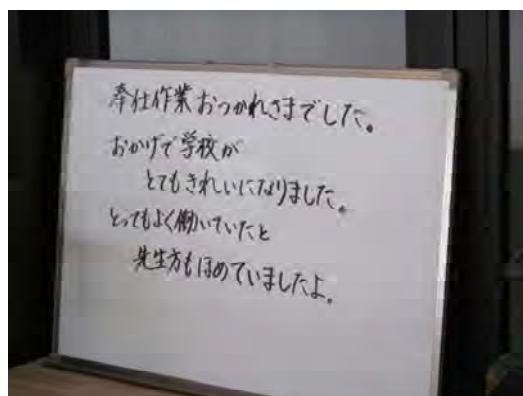 奉仕作業おつかれさまでした。
おかげで学校が
とてもきれいになりました。
とってもよく働いていたと
先生方もほめていましたよ。